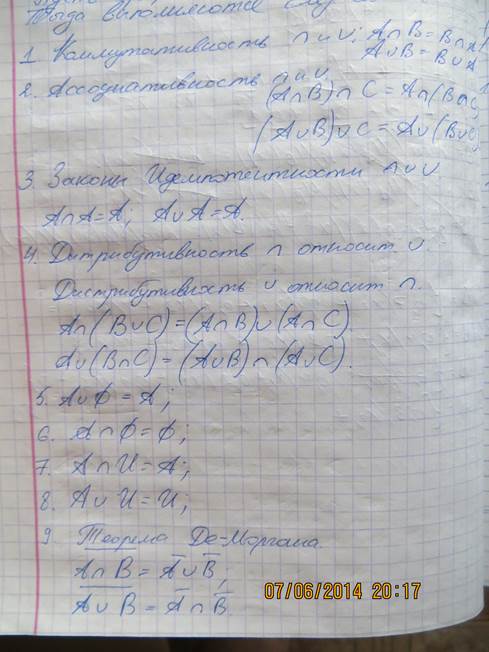 Тогда выполняются
1. Коммутативность ∩ и ∪; A∩B = B∩A
A∪B = B∪A
2. Ассоциативность ∩ и ∪
(A∩B)∩C = A∩(B∩C)
(A∪B)∪C = A∪(B∪C)
3. Законы Идемпотентности ∩ и ∪
A∩A=A; A∪A=A.
4. Дитрибутивность ∩ относит. ∪
Дистрибутивность ∪ относит ∩.
A∩(B∪C)=(A∩B)∪(A∩C).
A∪(B∩C)=(A∪B)∩(A∪C).
5. A∪∅ = A;
6. A∩∅ = ∅;
7. A∩U = A;
8. A∪U = U;
9. Теорема Де-Моргана.
A̅∩̅B̅ = A̅∪B̅;
A̅∪̅B̅ = A̅∩B̅
07/06/2014 20:17